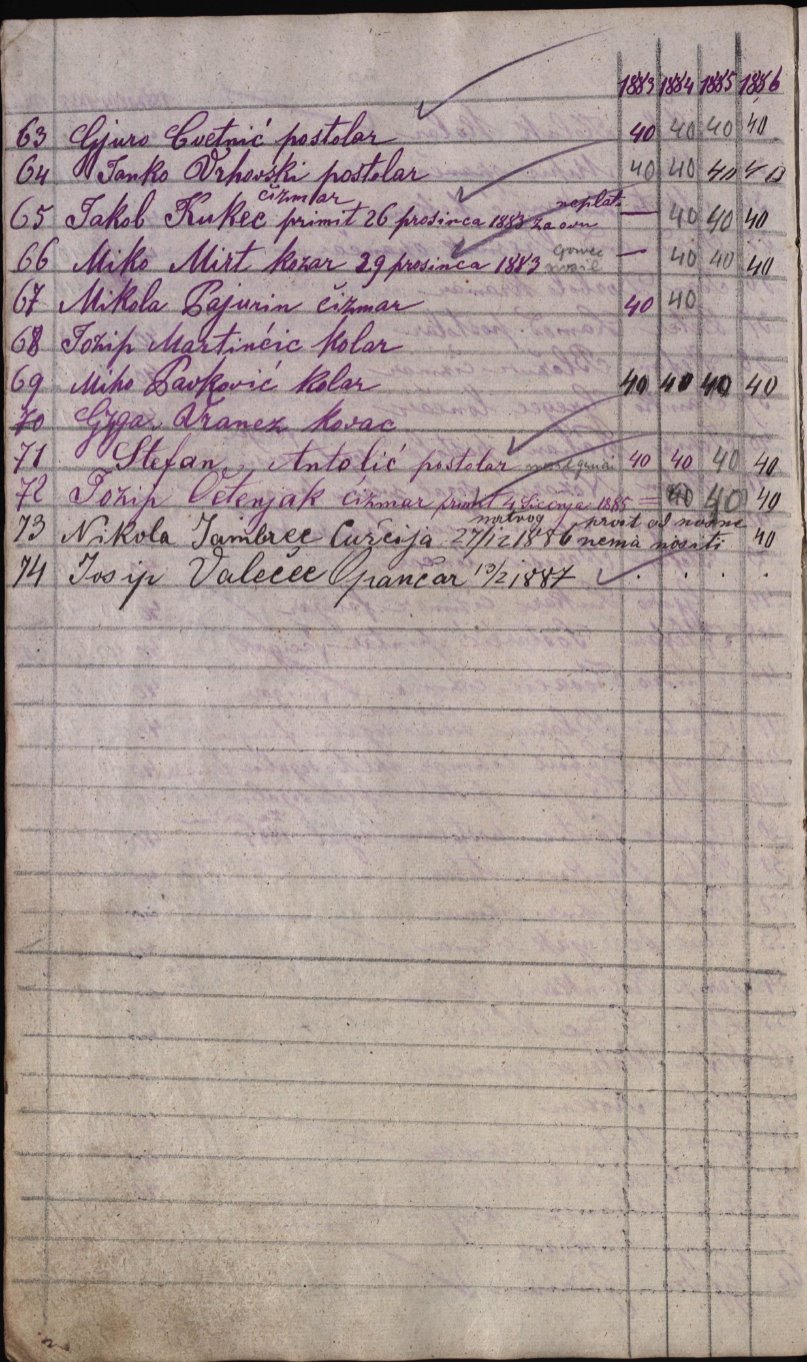 1883 1884 1885 1886
63 Gjuro Cvetnić postolar 40 40 40 40
64 Janko Vrhovski postolar 40 40 40 40
čizmar neplati
65 Jakob Kukec primit 26 prosinca 1883 za ovu — 40 40 40
66 Miko Mirt kozar 29 prosinca 1883 — 40 40 40
67 Mikola Pajurin čizmar 40 40
68 Jozip Martinčic kolar
69 Miho Pavković kolar 40 40 40 40
70 Gjga Vranez kovac
71 Stefan Antolić postolar 40 40 40 40
72 Jozip Očenjak čizmar primit 4 Sičnja 1885 = 40 40 40
mrtvog prvit od
73 Nikola Jambrec Čurčija 27/12 1886 nema nositi 40
74 Josip Valeček Opančar 13/2 1887 . . . .